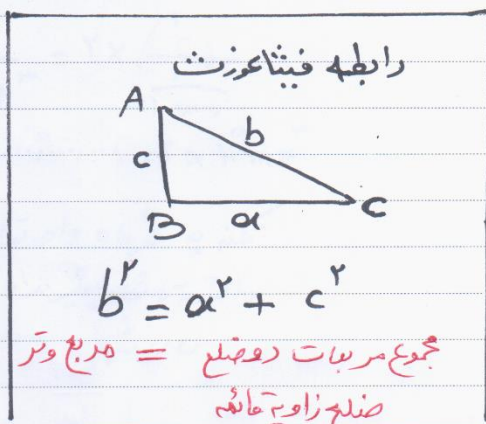 رابطه فیثاغورث
A
b
c
B
a
C
b² = a² + c²
مجموع مربعات دو ضلع = مربع وتر
ضلع زاویة قائمه